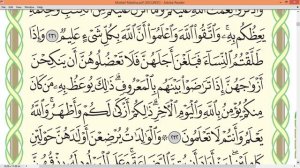 (SECURED) - Adobe Reader
يَعِظُكُم بِهِۦ ۚ وَٱتَّقُوا۟ ٱللَّهَ وَٱعْلَمُوٓا۟ أَنَّ ٱللَّهَ بِكُلِّ شَىْءٍ عَلِيمٌ ٢٣١ وَإِذَا
طَلَّقْتُمُ ٱلنِّسَآءَ فَبَلَغْنَ أَجَلَهُنَّ فَلَا تَعْضُلُوهُنَّ أَن يَنكِحْنَ
أَزْوَٰجَهُنَّ إِذَا تَرَٰضَوْا۟ بَيْنَهُم بِٱلْمَعْرُوفِ ۗ ذَٰلِكَ يُوعَظُ بِهِۦ مَن كَانَ
مِنكُمْ يُؤْمِنُ بِٱللَّهِ وَٱلْيَوْمِ ٱلْءَاخِرِ ۗ ذَٰلِكُمْ أَزْكَىٰ لَكُمْ وَأَطْهَرُ ۗ وَٱللَّهُ
يَعْلَمُ وَأَنتُمْ لَا تَعْلَمُونَ ٢٣٢ ۞ وَٱلْوَٰلِدَٰتُ يُرْضِعْنَ أَوْلَٰدَهُنَّ حَوْلَيْنِ